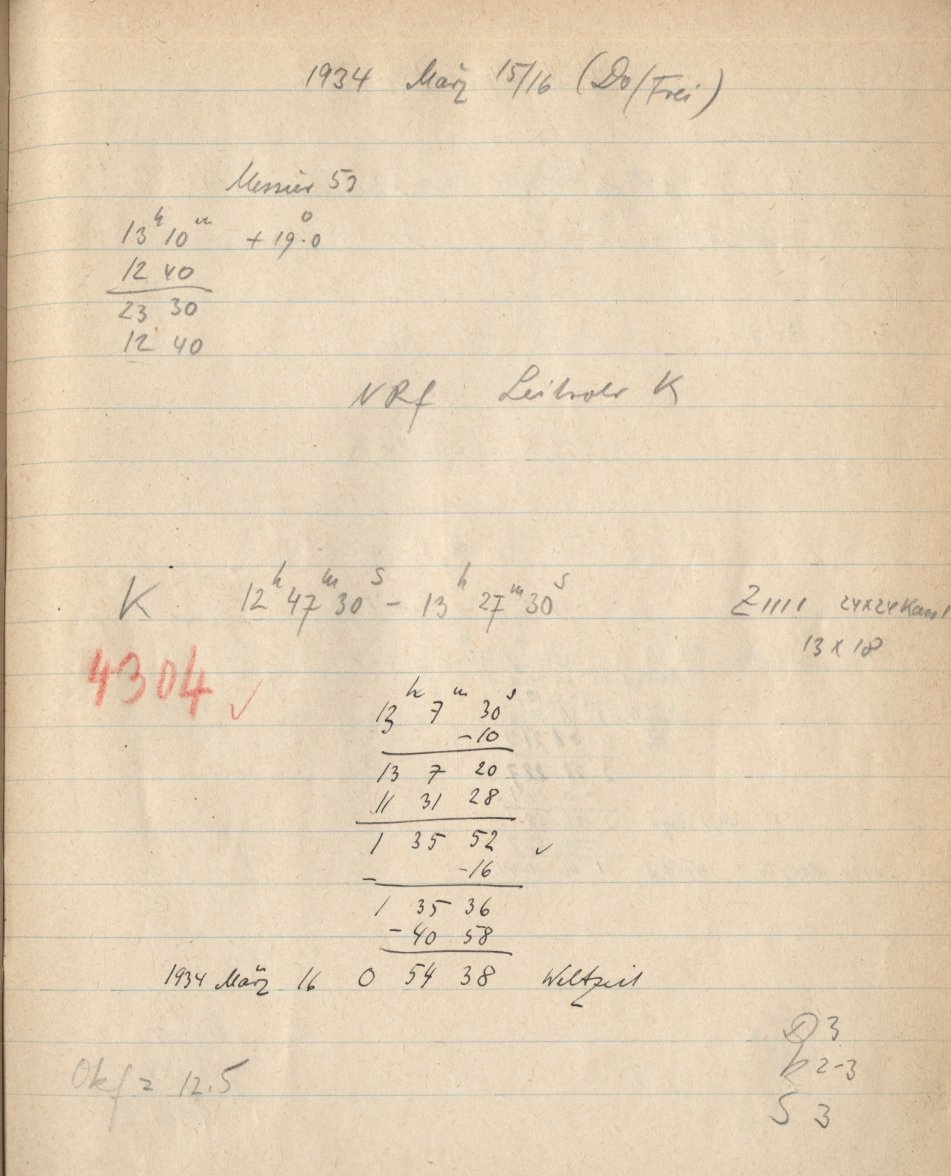 1934 März 15/16 (Do/Frei)
Messier 53
13h 10m + 19°.0
12 40
23 30
12 40
NRf K
K 12h 47m 30s - 13h 27m 30s Z IIII 24x24
13 x 18
4304 ✓
13h 7m 30s
-10
13 7 20
11 31 28
1 35 52 ✓
-16
1 35 36
- 40 58
1934 März 16 0 54 38 Weltzeit
D 3
R 2-3
S 3
Okf = 12.5